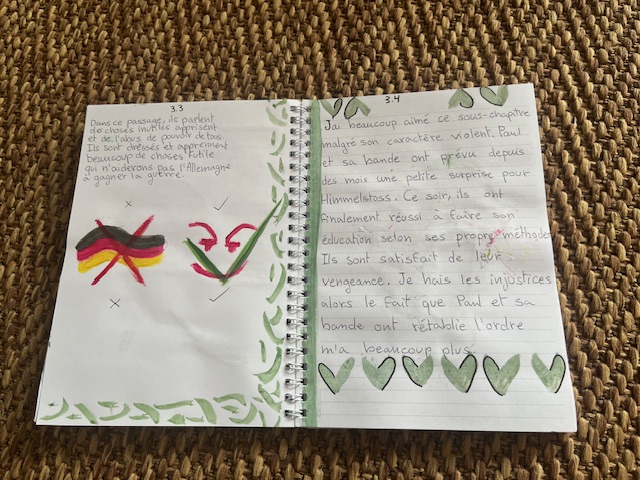 3.3
Dans ce passage, ils parlent
de choses inutiles apprisent
et de l'abus de pouvoir de tas.
Ils sont dréssés et apprennent
beaucoup de choses futile
qui n'aiderons pas l'Allemagne
à gagner la guerre.
3.4
J'ai beaucoup aimé ce sous-chapitre
malgré son caractère violent. Paul
et sa bande ont prévu depuis
des mois une petite surprise pour
Himmelstoss. Ce soir, ils ont
finalement réussi à faire son
éducation selon ses propre méthodes
Ils sont satisfait de leur
vengeance. Je hais les injustices
alors le fait que Paul et sa
bande ont rétablie l'ordre
m'a beaucoup plus.